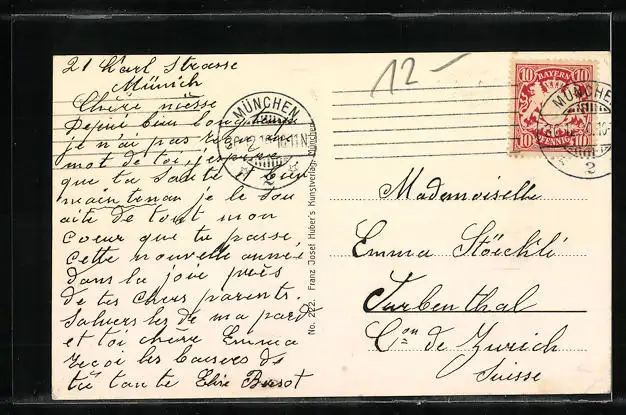 21 Karl Strasse
Münich
Chère nièsse
Depuis bien longtemps
je n'ai pas reçu un
mot de toi, j'espère
que ta santé bien
maintenan je le sou
aite de tout mon
coeur que tu passe
cette nouvelle année
dans la joie près
de tes chers parents.
Saluers les de ma pard
et toi chère Emma
reçoi les baisers de
tu tante Elise Bussot
MÜNCHEN
2
No. 222. Franz Josef Huber's Kunstverlag, München
12 –
10 BAYERN 10
10 PFENNIG 10
MÜNCHEN
2
Mademoiselle
Emma Stöckli
Turbenthal
Con de Zurich
Suisse